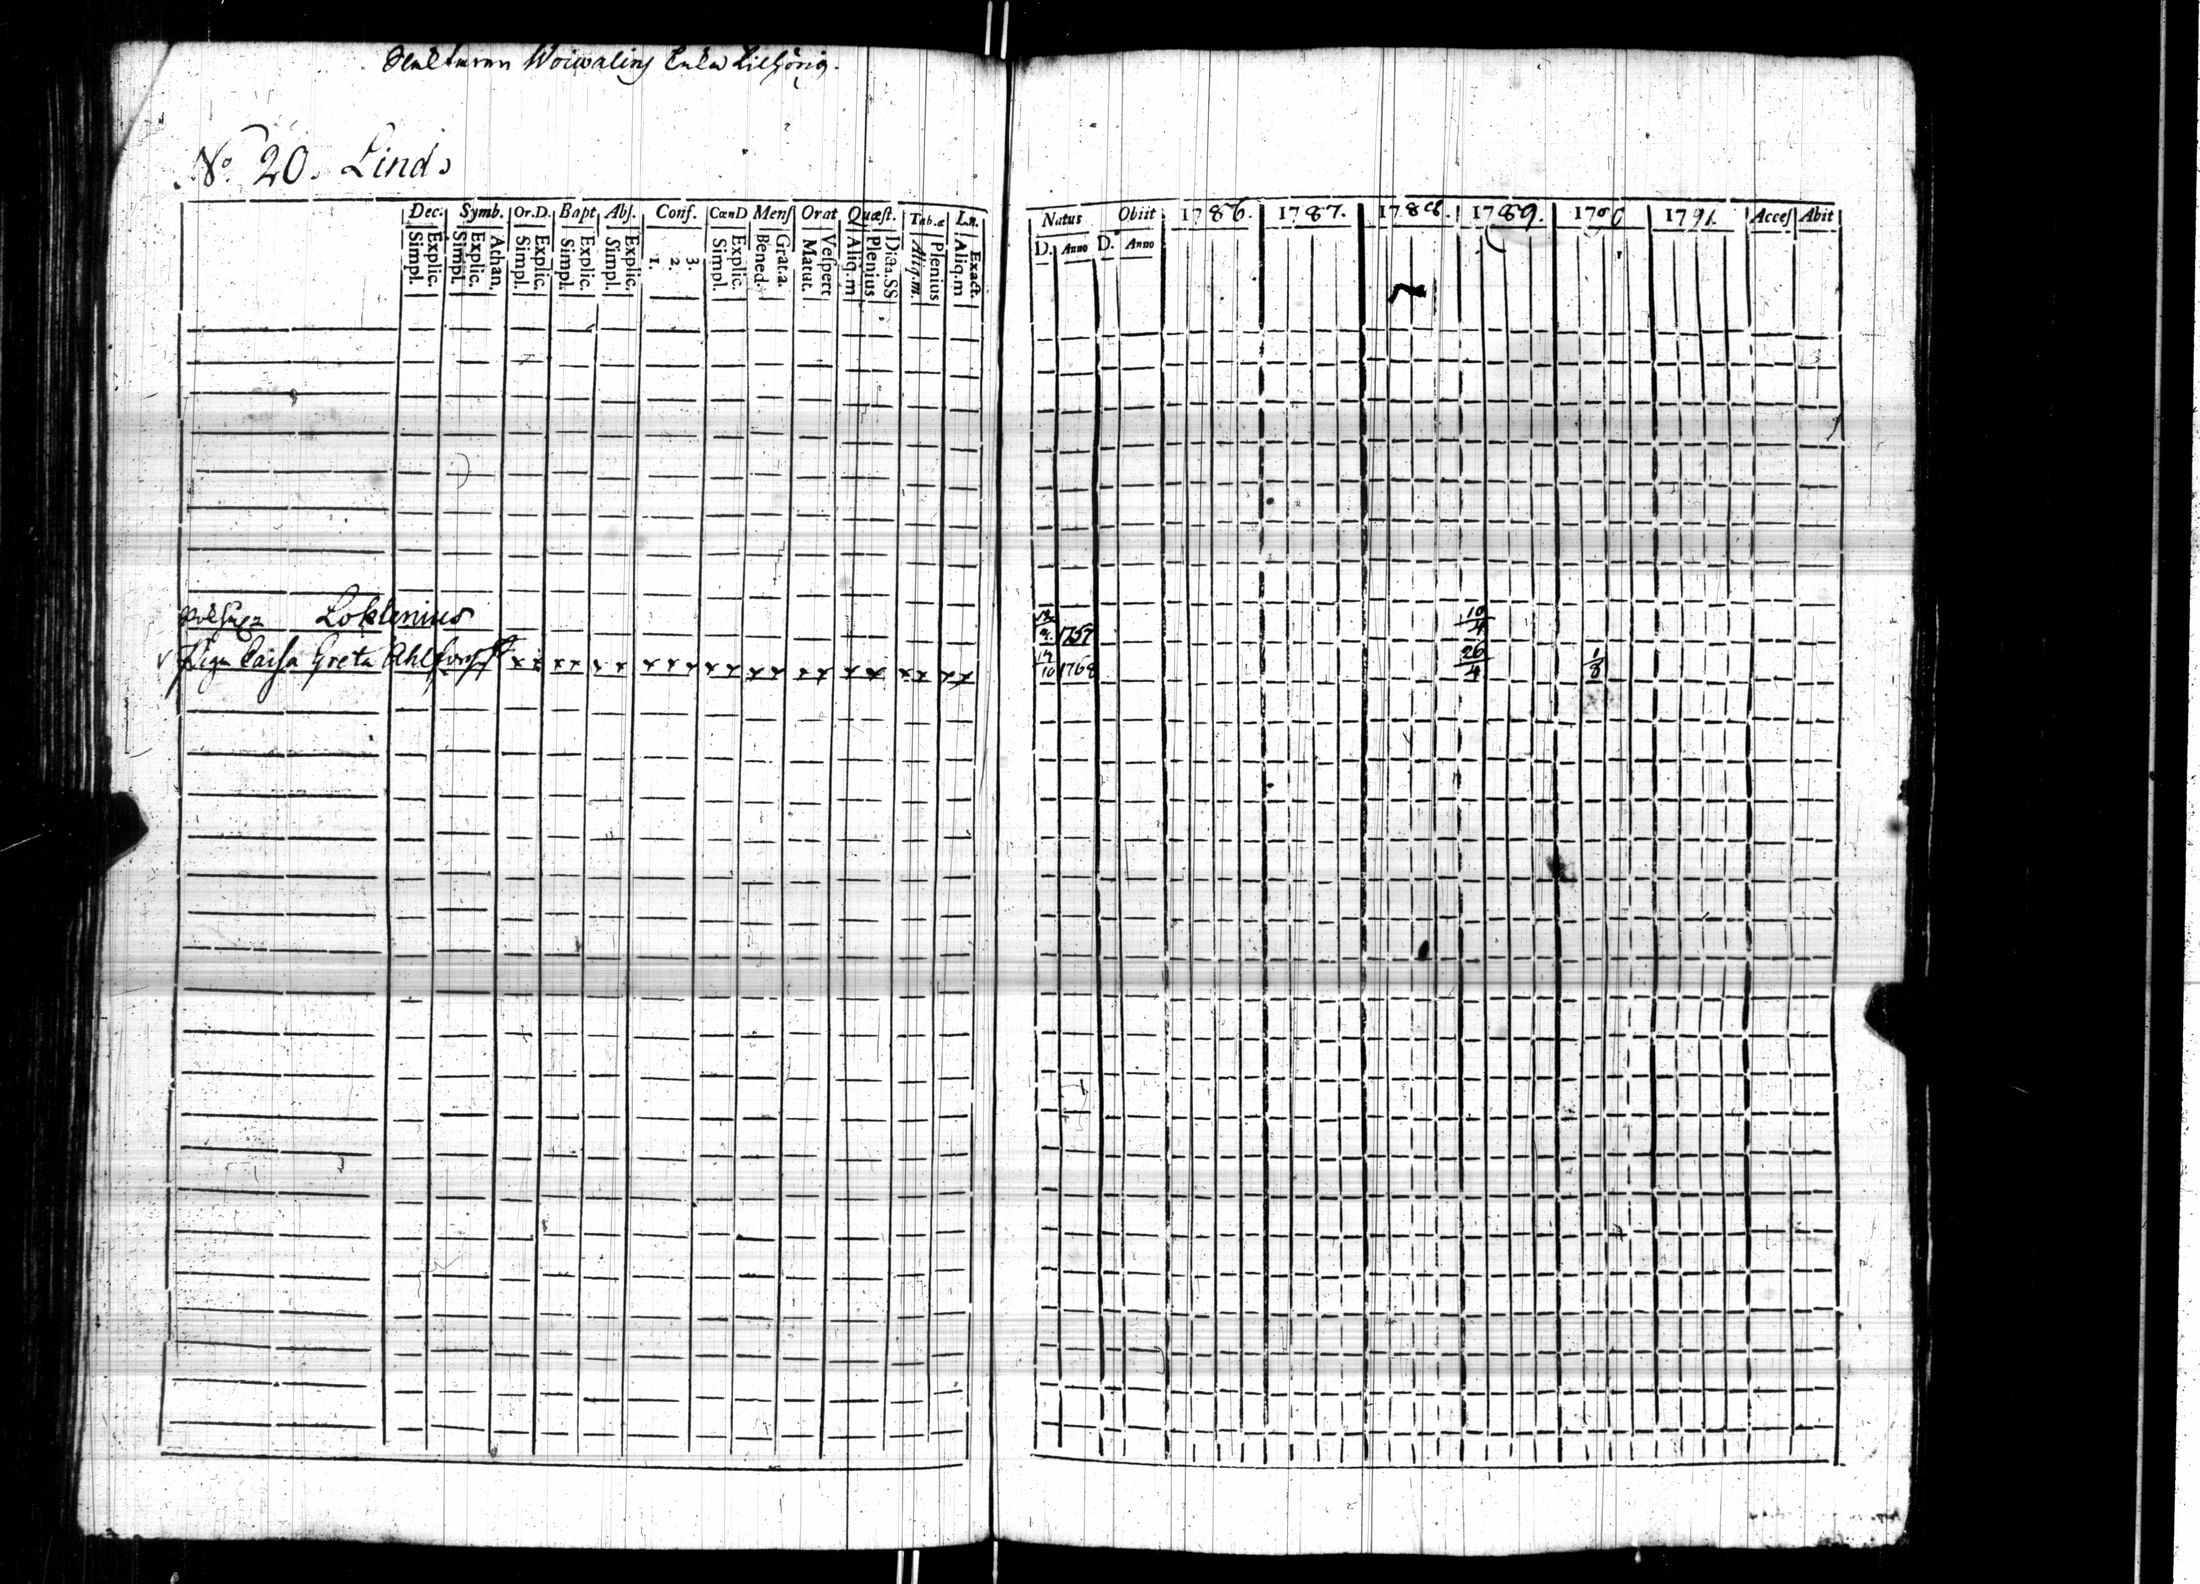 Enka
No. 20. Linds
Dec. Symb. Or.D. Bapt Abſ. Conf. CœnD Menſ Orat Quæſt. Tab.æ Ln.
Simpl. Explic. Simpl. Explic. Athan. Simpl. Explic. Simpl. Explic. Simpl. Explic. 1. 2. 3. Simpl. Explic. Bened. Grat.a. Matut. Veſpert Aliq.m Plenius Dicta.SS Aliq.m. Plenius Aliq.m Exact.
Loklenius
v Pigan Caisa Greta Ahlforss x x x x x x x x x x x x x x x x x x x x x
Natus Obiit 1786. 1787. 1788. 1789. 1790 1791. Acceſ Abit
D. Anno D. Anno
1757 10/4
14/10 1768 26/4 1/8